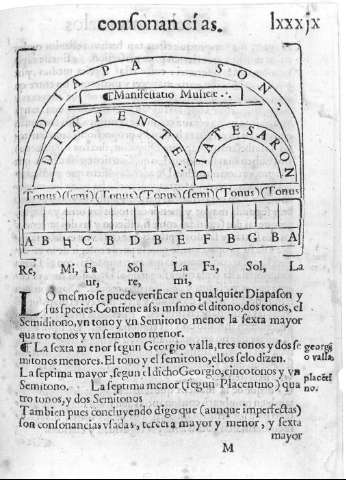 consonancias.
lxxxjx
DIAPASON;
¶Manifestatio Musicæ ∴
DIAPENTE ∴
DIATESARON
Tonus)(semi)(Tonus)(Tonus)(Tonus)(semi)(Tonus)(Tonus
A B ♮ C B D B E F B G B A
Re, Mi, Fa Sol La Fa, Sol, La
ut, re, mi,
LO mesmo se puede verificar en qualquier Diapason y
sus species. Contiene assi mismo el ditono, dos tonos, el
Semiditono, vn tono y vn Semitono menor la sexta mayor
quatro tonos y vn semitono menor.
¶ La sexta menor segun Georgio valla, tres tonos y dos se
georgi
mitonos menores. El tono y el semitono, ellos selo dizen.
o valla.
La septima mayor, segun el dicho Georgio, cinco tonos y vn
placẽti
Semitono. La septima menor (segun Placentino) qua
no.
tro tonos, y dos Semitonos
Tambien pues concluyendo digo que (aunque imperfectas)
son consonancias vsadas, tercera mayor y menor, y sexta
mayor
M